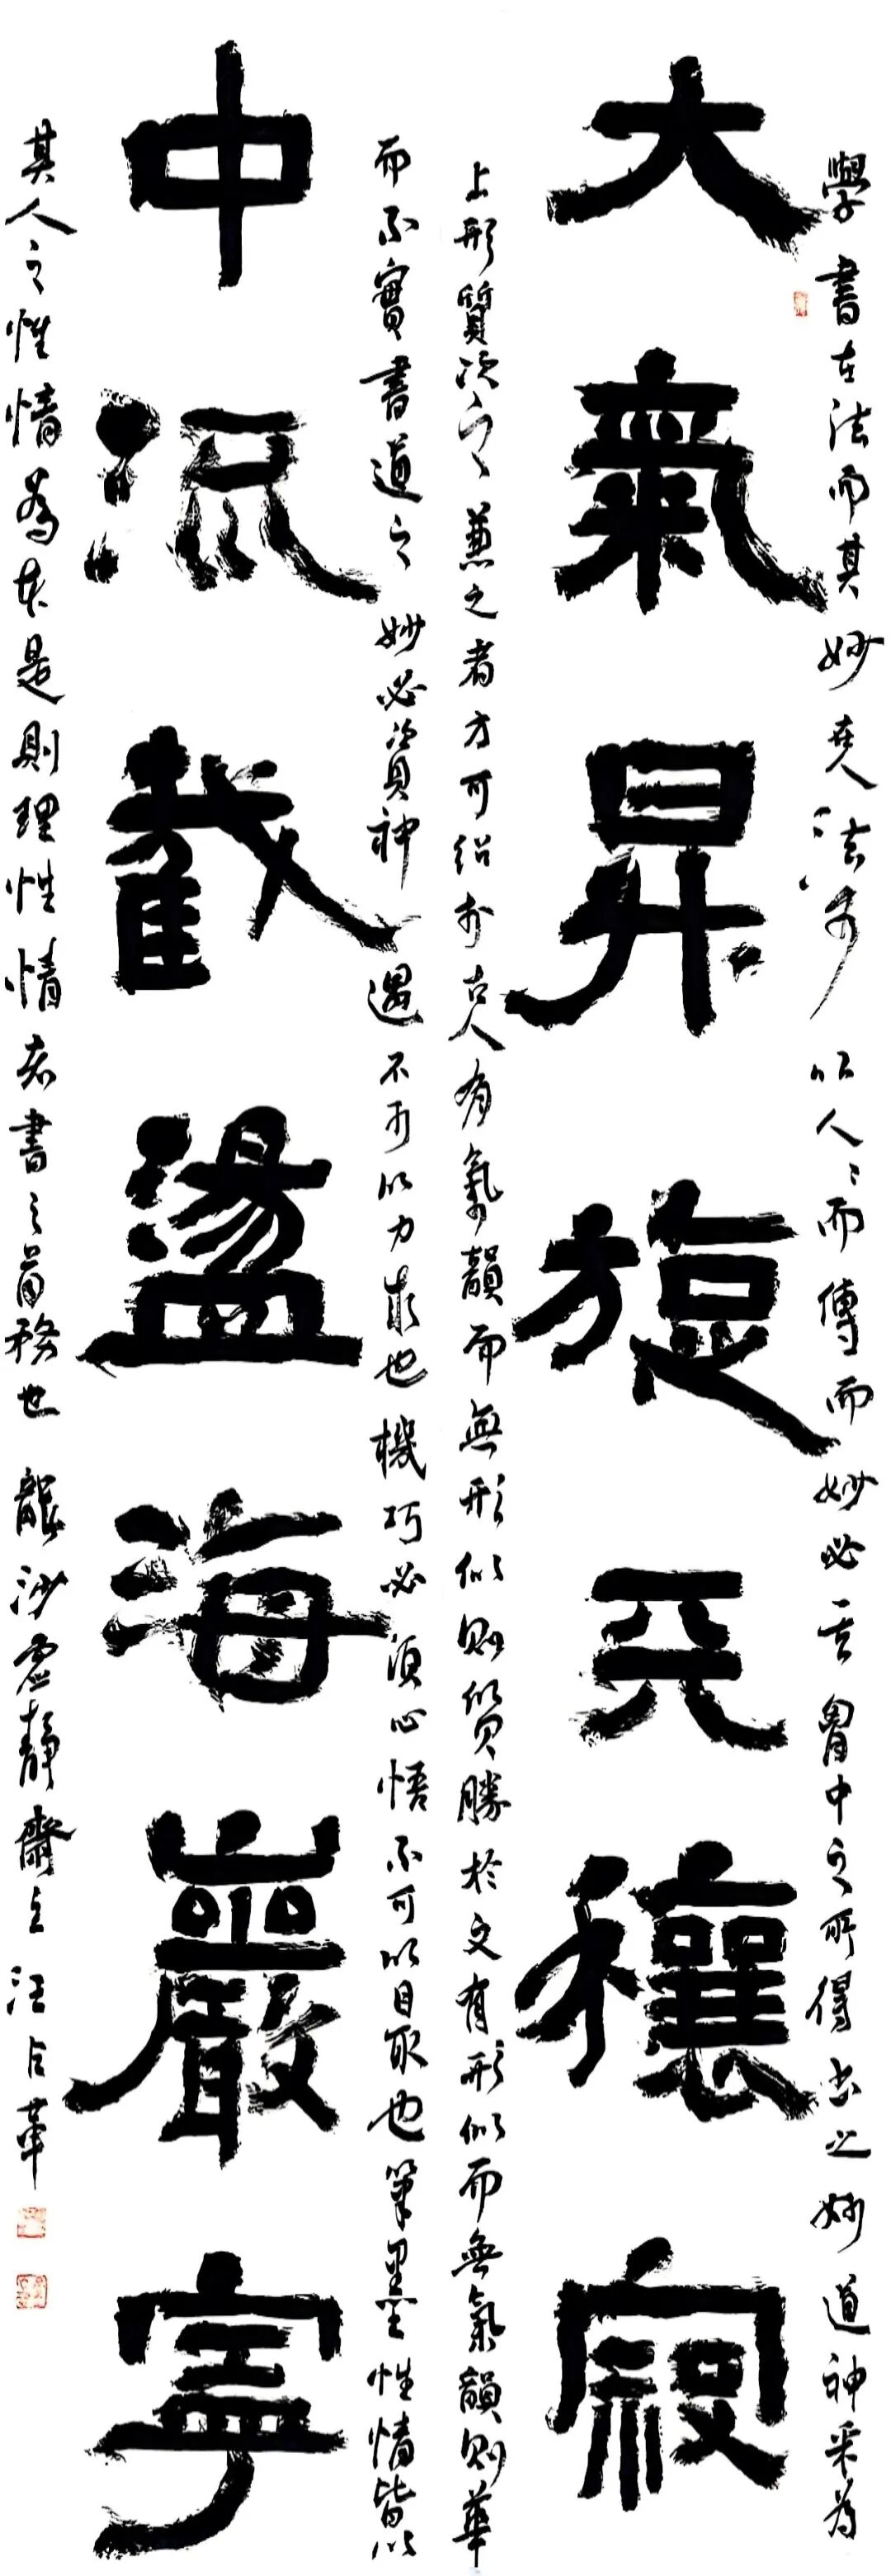 學書在法而其妙在人法可以人人而傳而妙必其胸中之所得書之妙道神采為
大氣昇旋天穰寂
上形質次之兼之者方可紹於古人有氣韻而無形似則質勝於文有形似而無氣韻則華
而不實書道之妙必資神遇不可以力求也機巧必須心悟不可以目取也筆墨性情皆以
中流截盪海巖寧
其人之性情為本是則理性情者書之首務也 龍沙虛靜齋主汪占華